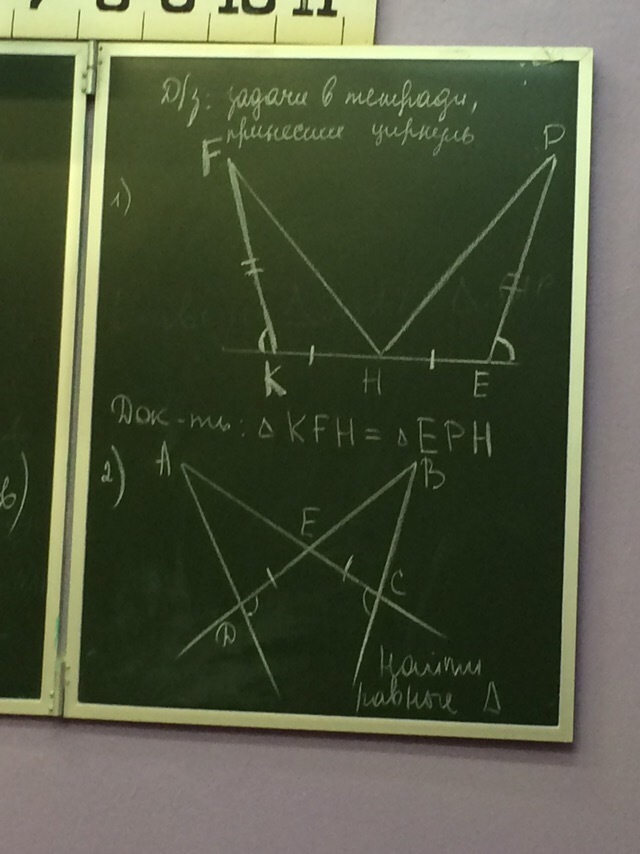 7 8 9 10 11
Д/з: задачи в тетради,
принесите циркуль
F P
1)
K H E
Док-ть: △ KFH = △ EPH
2) A B
E
D C
Найти
равные △